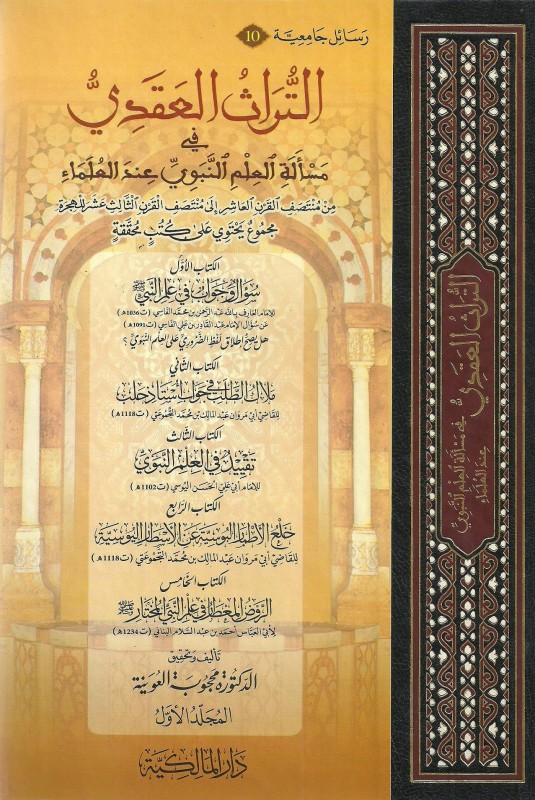 رسائل جامعية 10
التُّرَاثُ العَقَدِيُّ
فِي
مَسْأَلَةِ العِلْمِ النَّبَوِيِّ عِنْدَ العُلَمَاءِ
مِنْ مُنْتَصَفِ القَرْنِ العَاشِرِ إِلَى مُنْتَصَفِ القَرْنِ الثَّالِثَ عَشَرَ لِلْهِجْرَةِ
مَجْمُوعٌ يَحْتَوِي عَلَى كُتُبٍ مُحَقَّقَةٍ
الكتاب الأوّل
سُؤَالٌ وَجَوَابٌ فِي عِلْمِ النَّبِيِّ ﷺ
للإمام العارف بالله عبد الرحمن بن محمد الفاسي (ت1036هـ)
عن سؤال الإمام عبد القادر بن علي الفاسي (ت1091هـ)
هل يصح إطلاق لفظ الضروري على العلم النبوي ؟
الكتاب الثاني
مَلَاكُ الطَّلَبِ فِي جَوَابِ أُسْتَاذِ حَلَب
للقاضي أبي مروان عبد المالك بن محمد التجموعتي (ت1118هـ)
الكتاب الثالث
تَقْيِيدٌ فِي العِلْمِ النَّبَوِيِّ
للإمام أبي علي الحسن اليوسي (ت1102هـ)
الكتاب الرابع
خَلْعُ الأَطْمَارِ البُوسِيَّةِ عَنِ الأَسْطَارِ اليُوسِيَّةِ
للقاضي أبي مروان عبد المالك بن محمد التجموعتي (ت1118هـ)
الكتاب الخامس
الرَّوْضُ المِعْطَارُ فِي عِلْمِ النَّبِيِّ المُخْتَارِ ﷺ
لأبي العباس أحمد بن عبد السلام البناني (ت1234هـ)
تأليف وتحقيق
الدكتورة محجوبة العوينة
المجلد الأوّل
دار المالكية
التراث العقدي
في مسألة العلم النبوي
عند العلماء